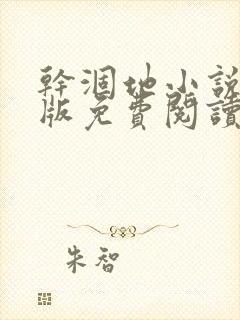 幹涸地小説
版免費閱讀
朱智